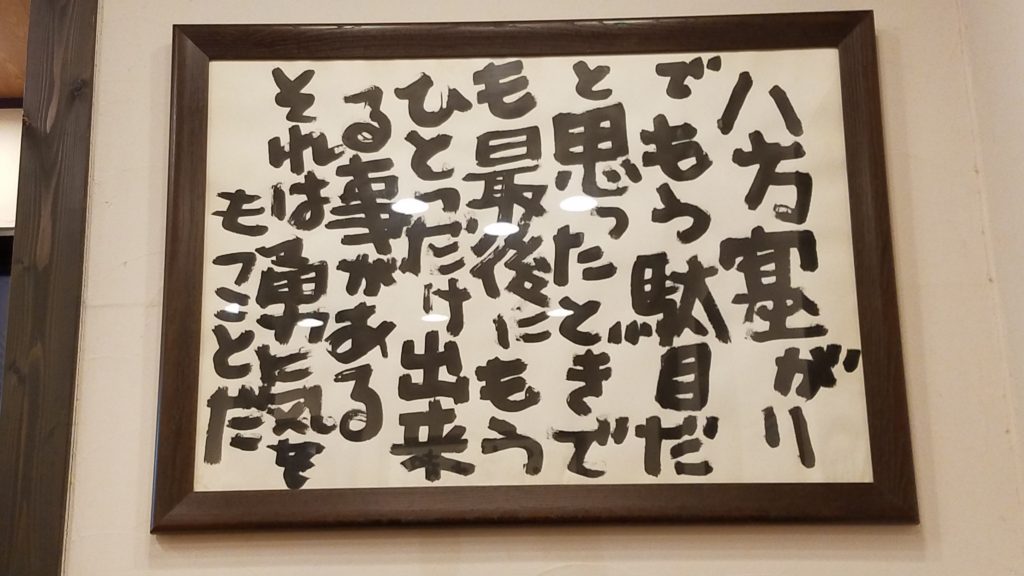 八方塞がり
でもう駄目だ
と思ったときで
も最後にもう
ひとつだけ出来
る事がある
それは勇気を
もつことだ